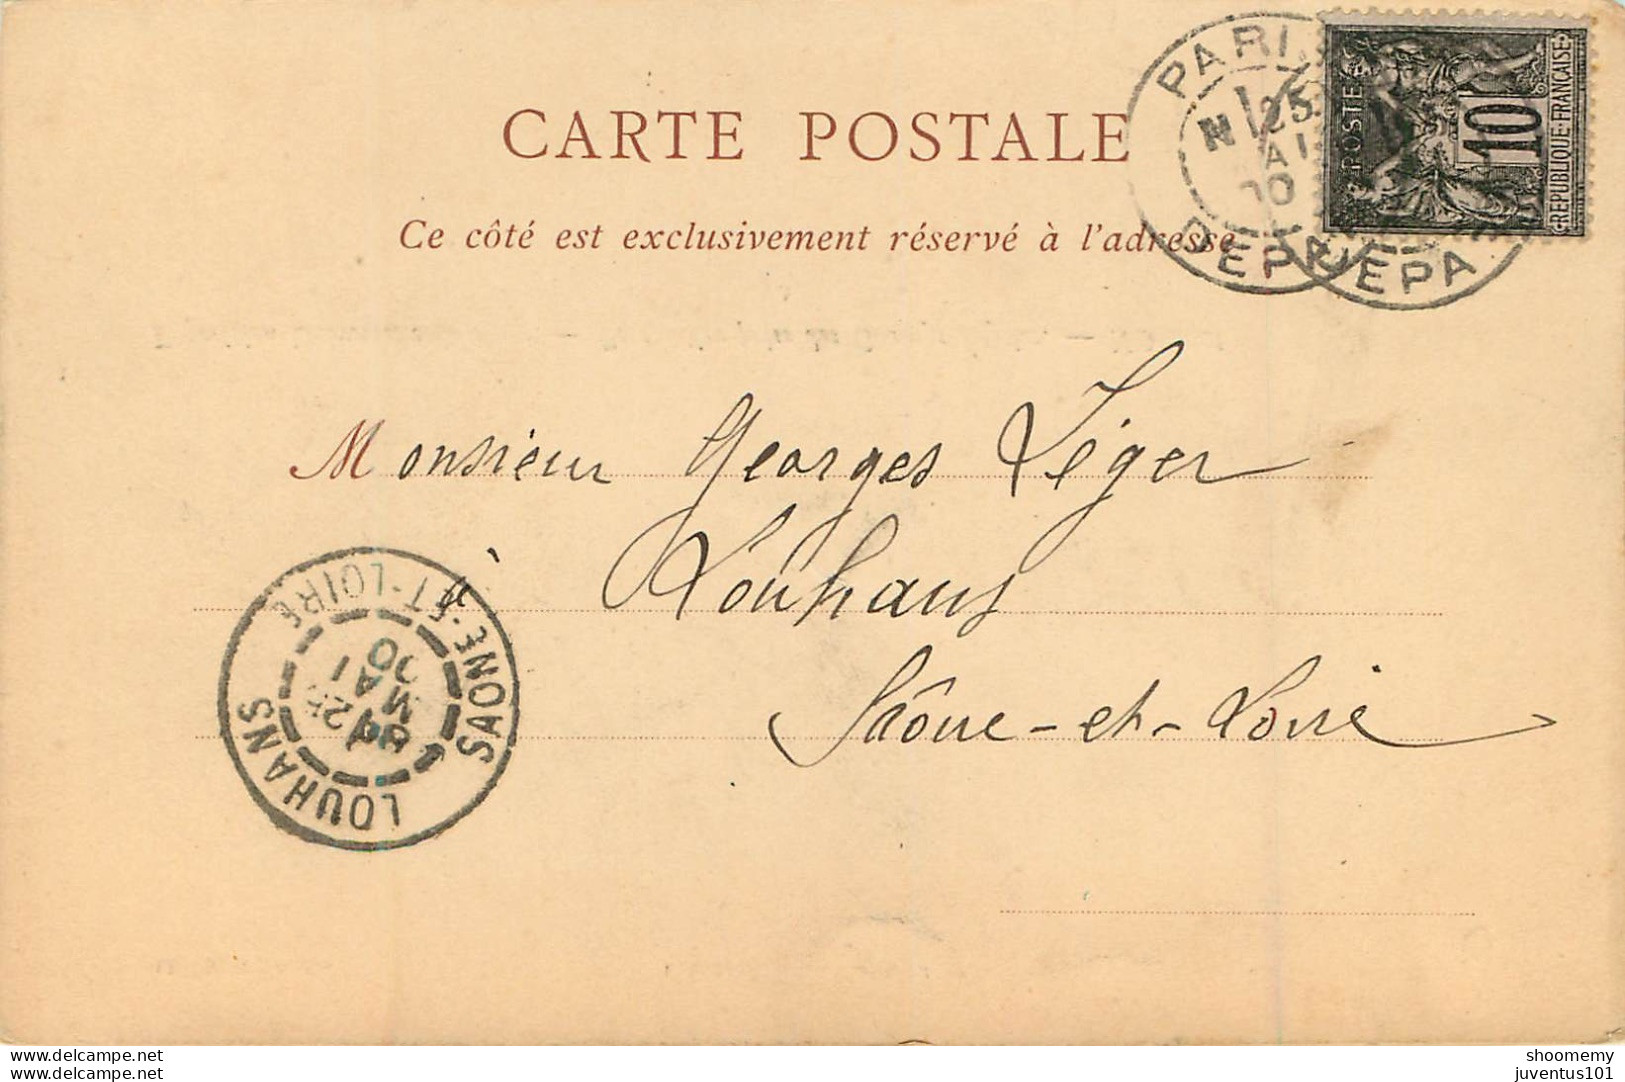 CARTE POSTALE
Ce côté est exclusivement réservé à l'adresse
PARIS
25
DEPART
DEPA
POSTE
10
REPUBLIQUE FRANÇAISE
Monsieur Georges Léger
à Louhans
Saône-et-Loire
LOUHANS
SAONE-ET-LOIRE
MAI
00
www.delcampe.com
www.delcampe.net
shoomemy
juventus101